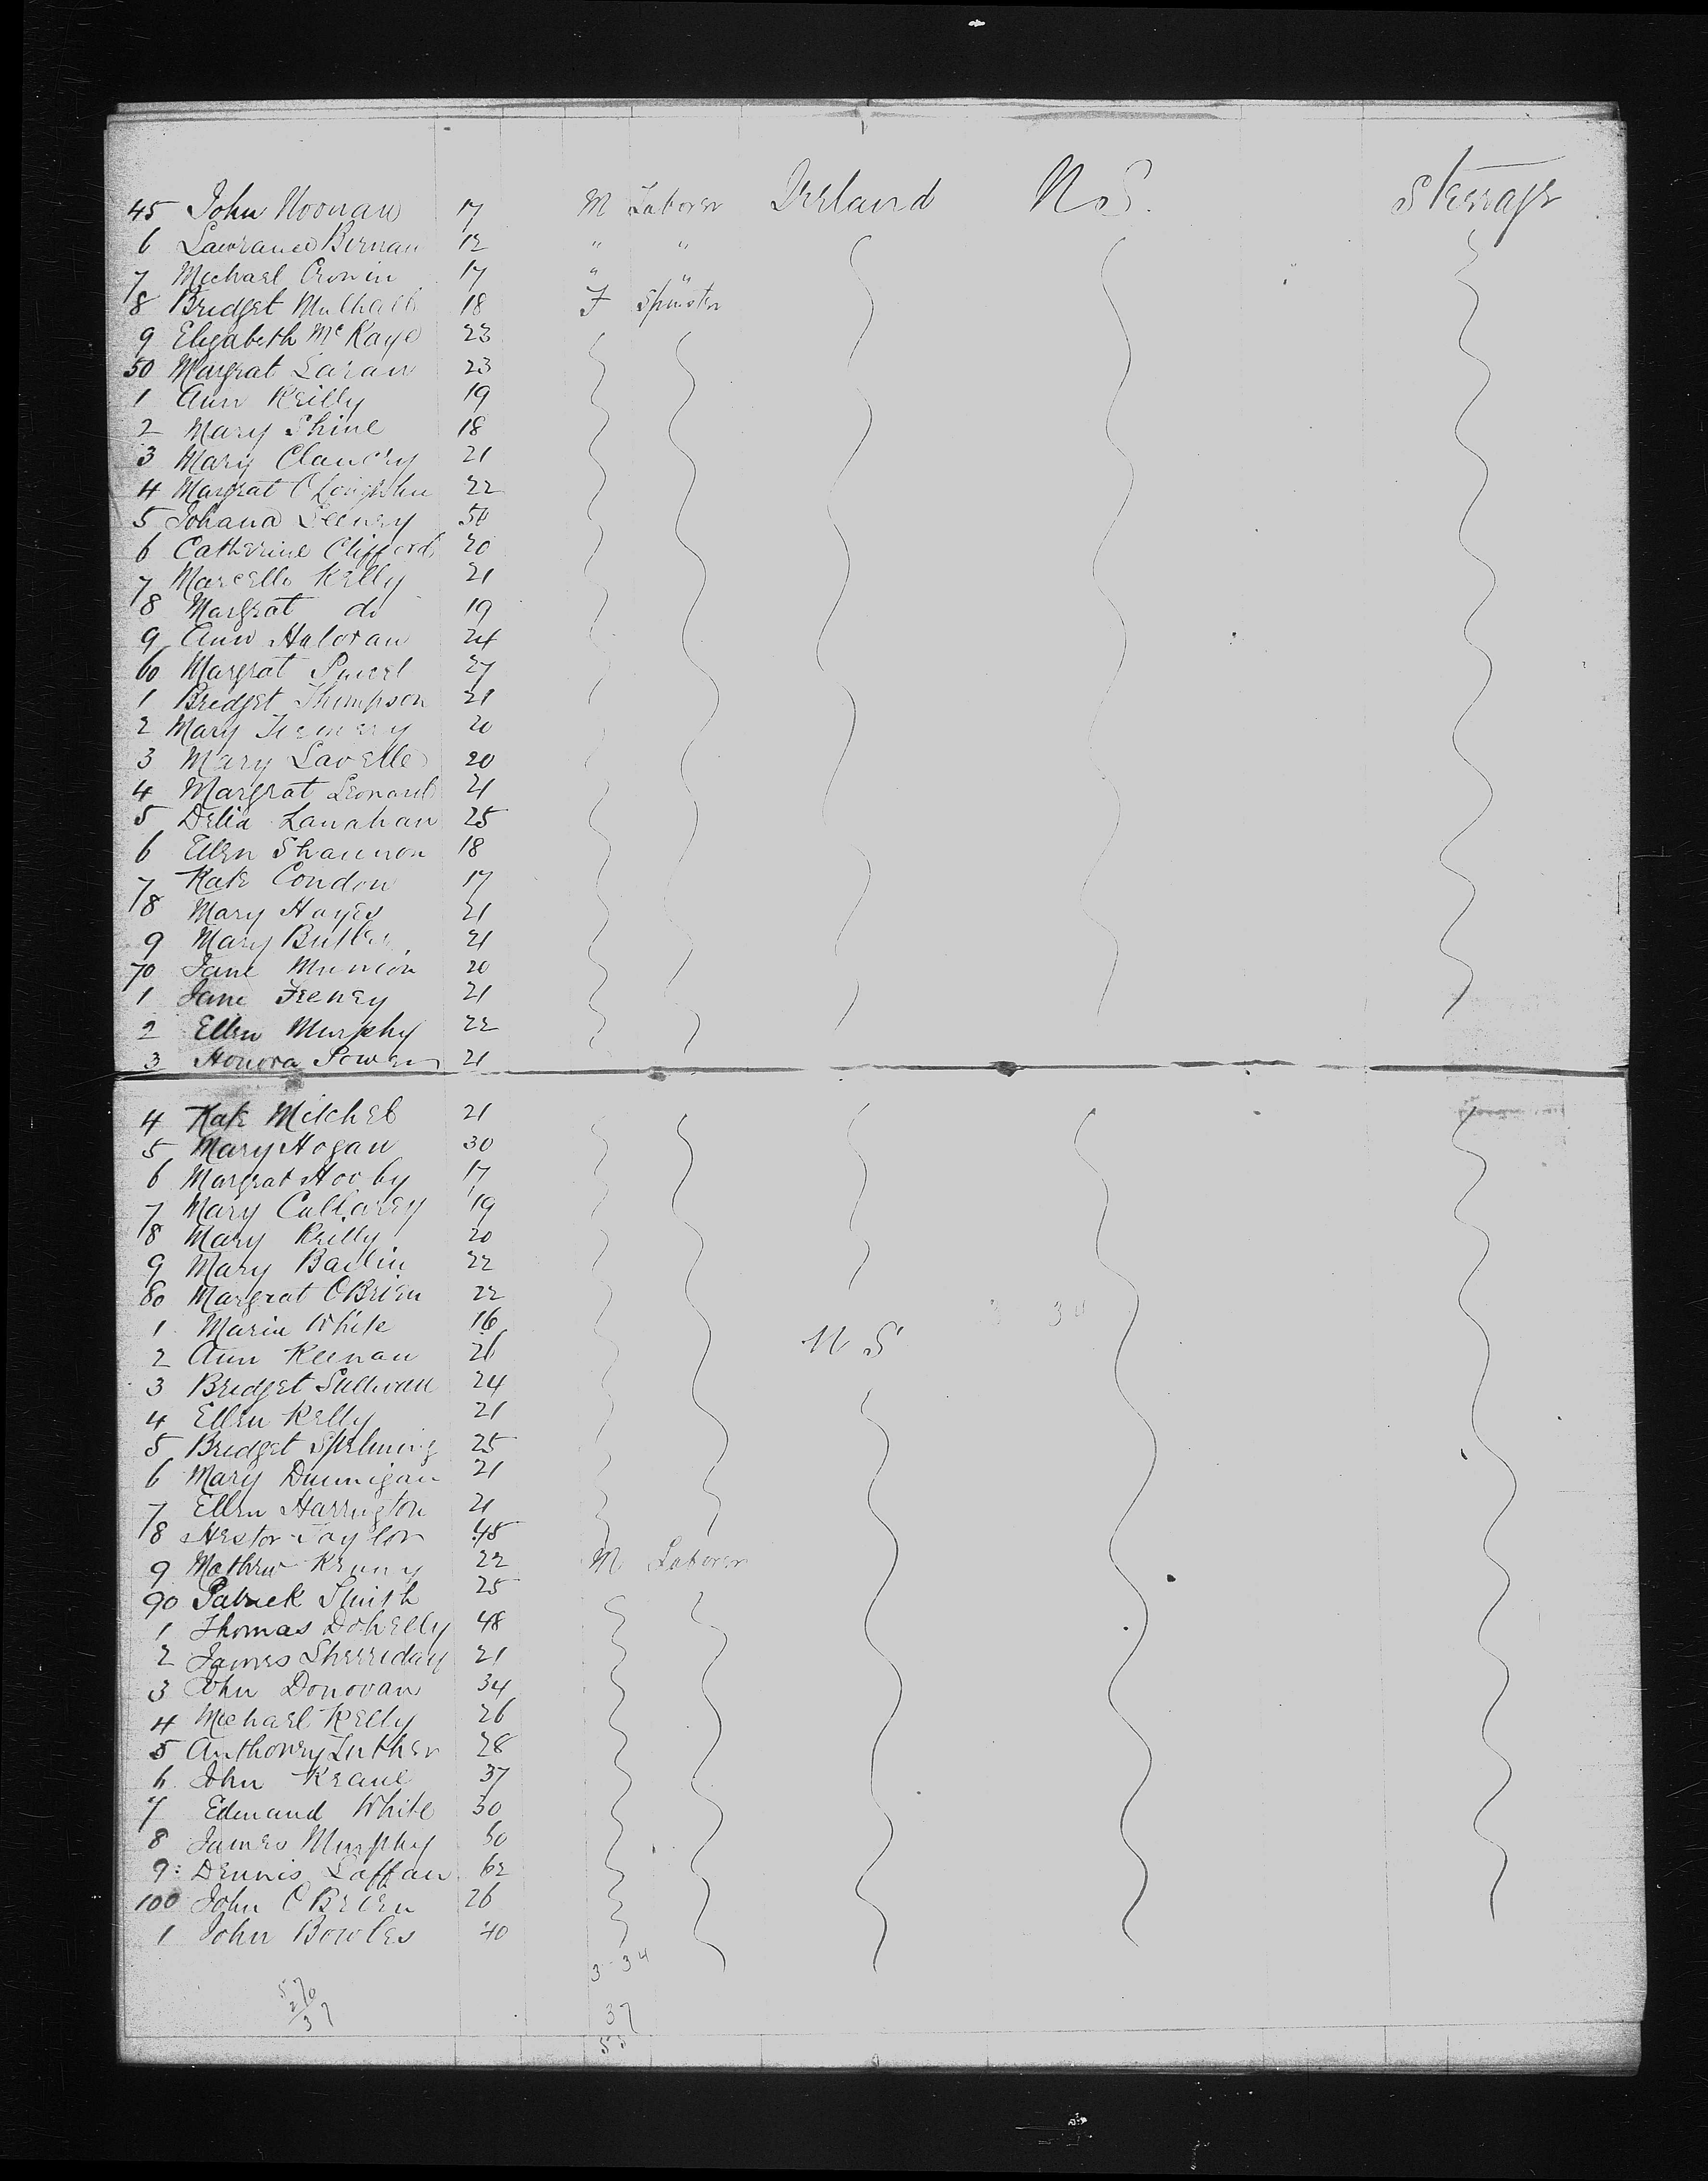 45 John Noonan 17 M Laborer Ireland U.S. Steerage
6 Lawrance Birnan 12 " "
7 Michael Cronin 17 " "
8 Bridget Mulhall 18 F Spinster
9 Elizabeth McKaye 23
50 Margrat Laran 23
1 Ann Reilly 19
2 Mary Shine 18
3 Mary Clancry 21
4 Margrat O'Loughlin 22
5 Johana 50
6 Catherine Clifford 20
7 Marcella Kelly 21
8 Margrat do 19
9 Ann Haloran 24
60 Margrat 27
1 Bridget Thimpson 21
2 Mary 20
3 Mary Lavelle 20
4 Margrat Leonard 21
5 Delia Lanahan 25
6 Ellen Shannon 18
7 Kate Condon 17
8 Mary Hayes 21
9 Mary Butler 21
70 Jane 20
1 Jane Feeney 21
2 Ellen Murphy 22
3 Honora Power 21
4 Kate Mitchel 21
5 Mary Hogan 30
6 Margrat 17
7 Mary Cullarey 19
8 Mary Reilly 20
9 Mary 22
80 Margrat OBrien 22
1 Maria White 16 U S
2 Ann Keenan 26
3 Bridget Sullivan 24
4 Ellen Kelly 21
5 Bridget 25
6 Mary Dunnigan 21
7 Ellen Harrington 21
8 Hestor Taylor 45
9 Mathew Kenny 22 M Laborer
90 Patrick Smith 25
1 Thomas Donelly 48
2 James Sherriday 21
3 John Donovan 34
4 Michael Kelly 26
5 Anthonry Luther 28
6 John Keane 37
7 Edmund White 30
8 James Murphy 50
9 Dennis Laffan 62
100 John O Brien 26
1 John Bowles 40
3-34
37